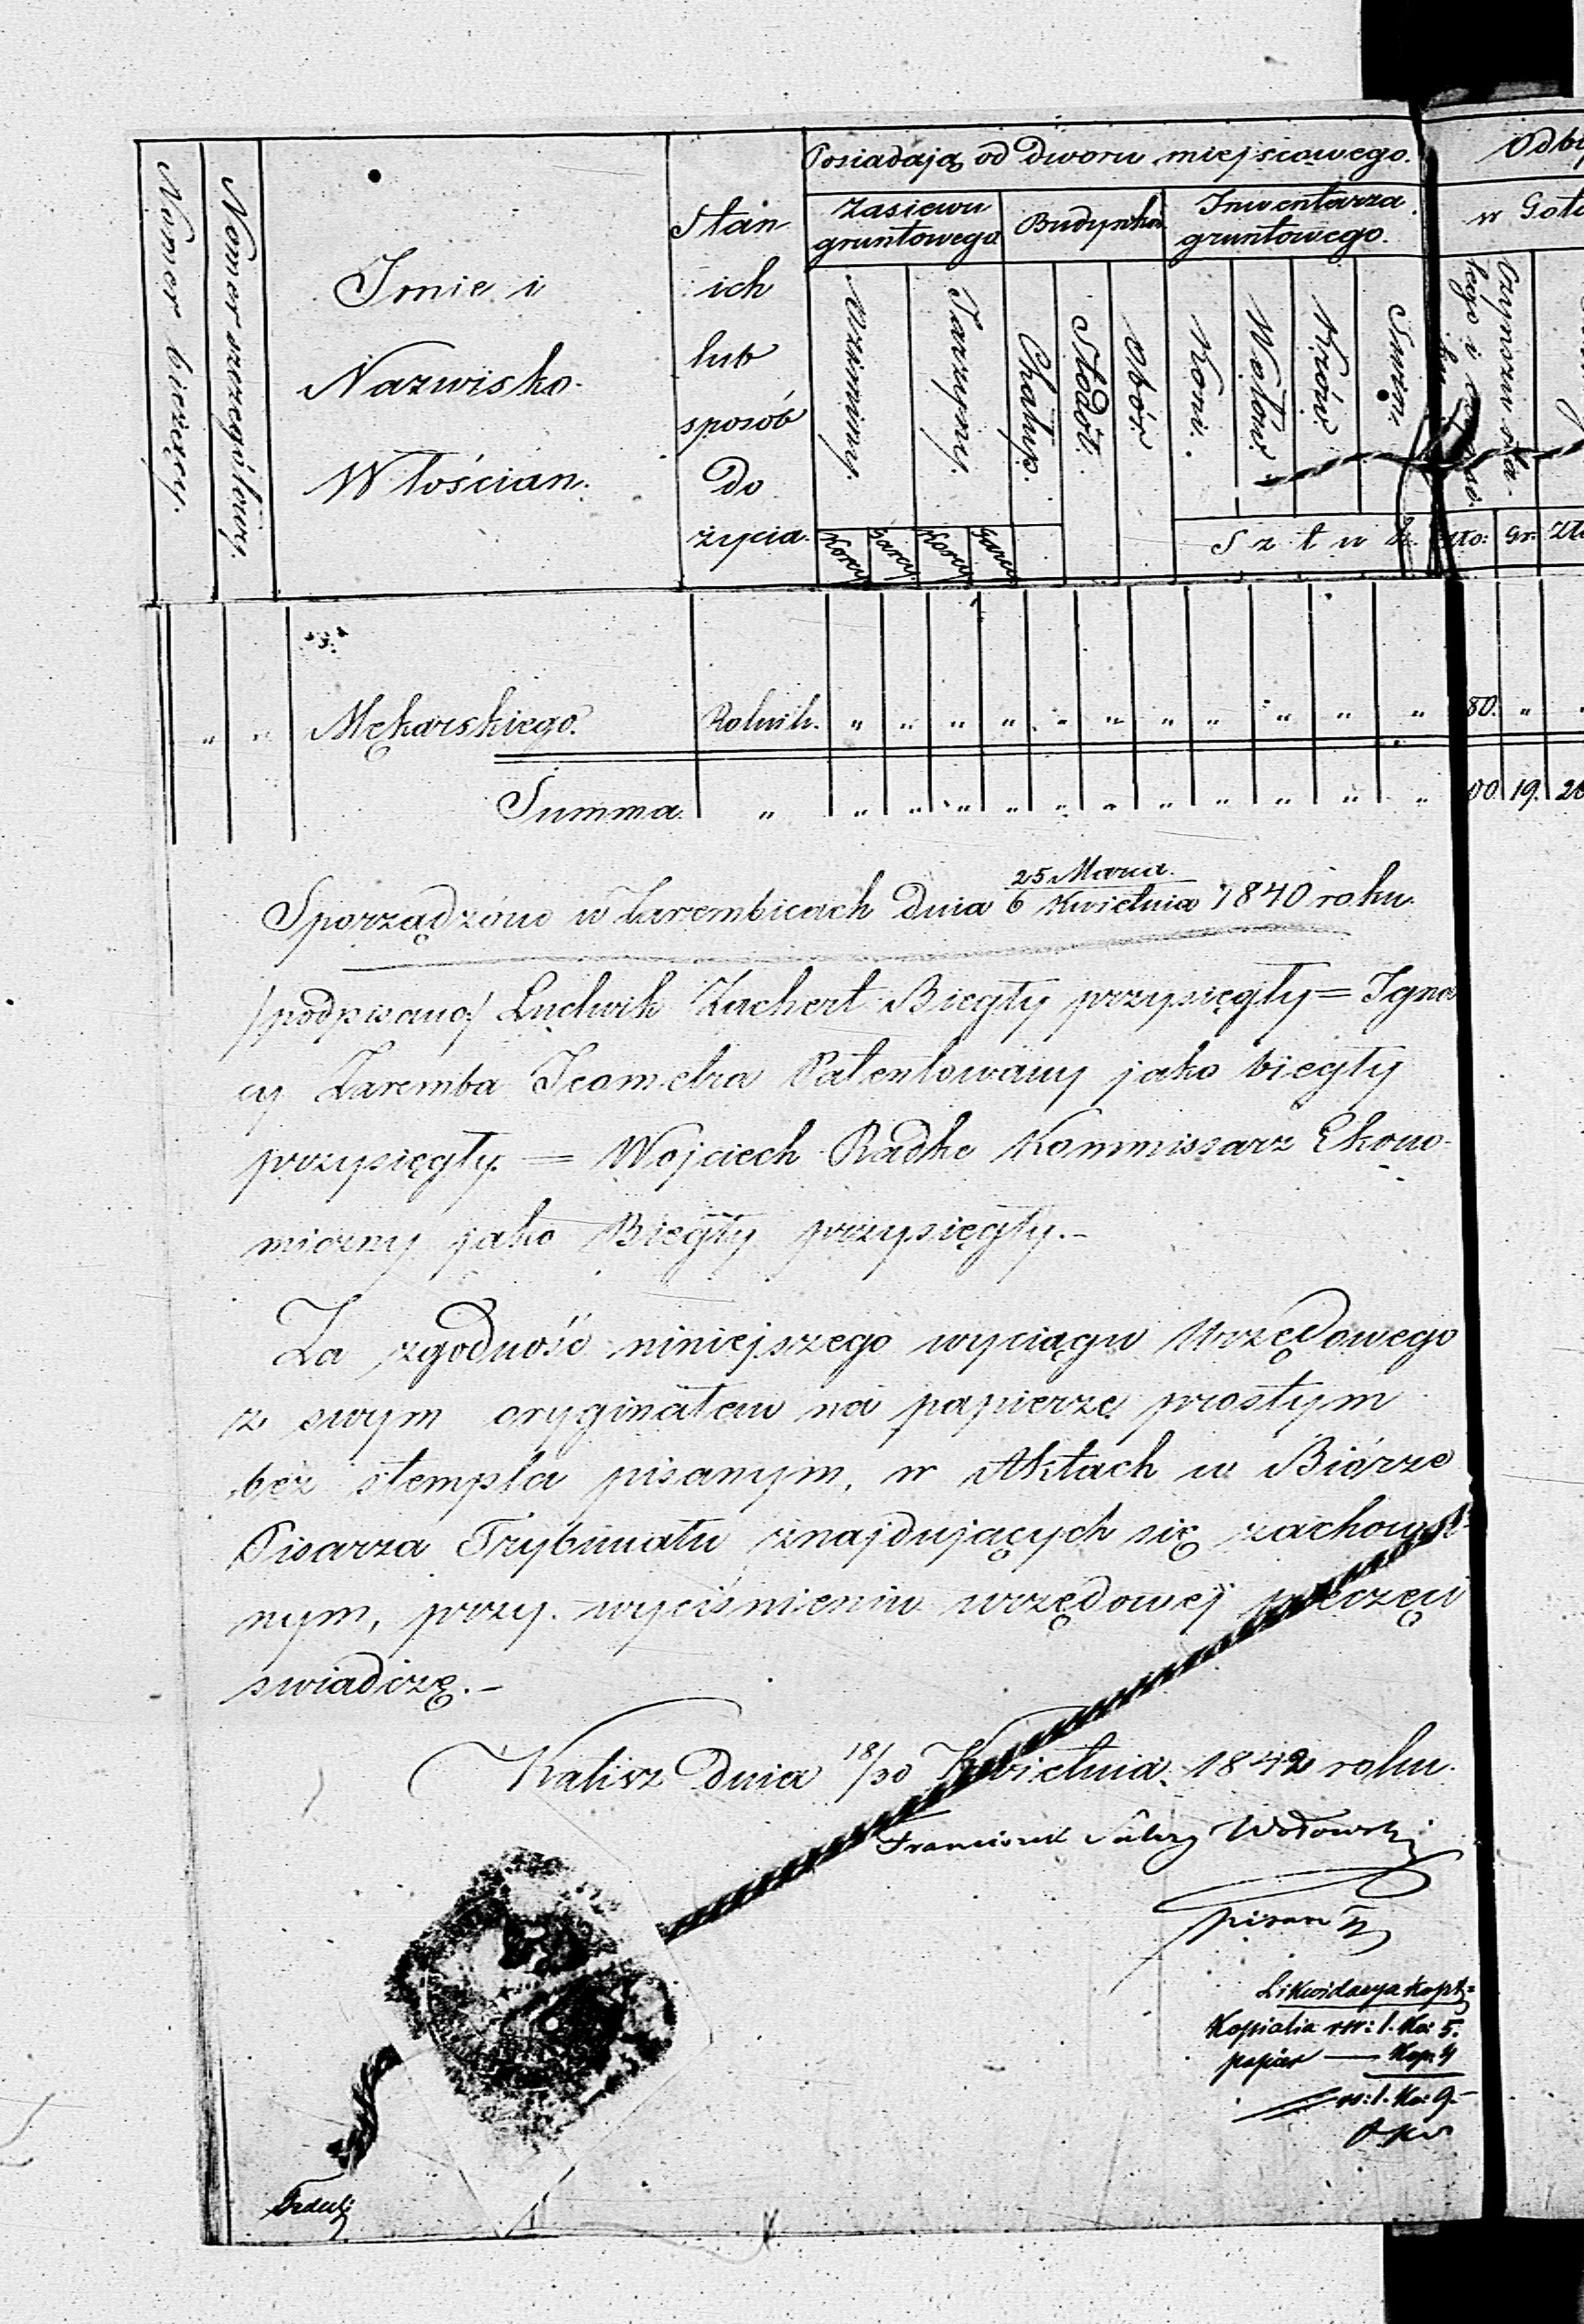 Numer bieżący.
Numer szczegółowy.
Imie i
Nazwisko
Włościan.
Stan
ich
lub
sposób
do
życia.
Posiadają od dworu miejscowego.
Zasiewu
gruntowego
Ozimimy.
Jarzyny.
Korcy
Garcy
Korcy
Garcy
Budynków
Chałup.
Stodół.
Obór.
Inwentarza
gruntowego.
Koni.
Wołów.
Krów.
Swiń.
Sztuk.
w Goto
Czynszu
Złto: Gr: Złt
" " Mękarskiego. Rolnik. " " " " " " " " " " " 80. "
Summa. " " " " " " " " " " " " 00. 19. 20
25 Marca
Sporządzono w Zarembicach dnia 6 Kwietnia 1840 roku.
/podpisano/ Ludwik Zachert Biegły przysięgły = Igna
cy Zaremba Jeometra Patentowany jako biegły
przysięgły. = Wojciech Radke Kommissarz Ekono-
miczny jako Biegły przysięgły. -
Za zgodność niniejszego wyciągu Urzędowego
z swym oryginałem na papierze prostym
bez stempla pisanym, w Aktach w Biórze
Pisarza Trybunału znajdujących się zachowa
nym, przy wyciśnieniu urzędowej pieczęci
swiadczę. -
Kalisz dnia 18/30 Kwietnia 1842 roku.
Franciszek Salezy Wodowski
pisarz
Likwidacya
Kopialia rsr: 1. Ko: 5.
papier — Kop: 4
rs: 1. Ko: 9. -